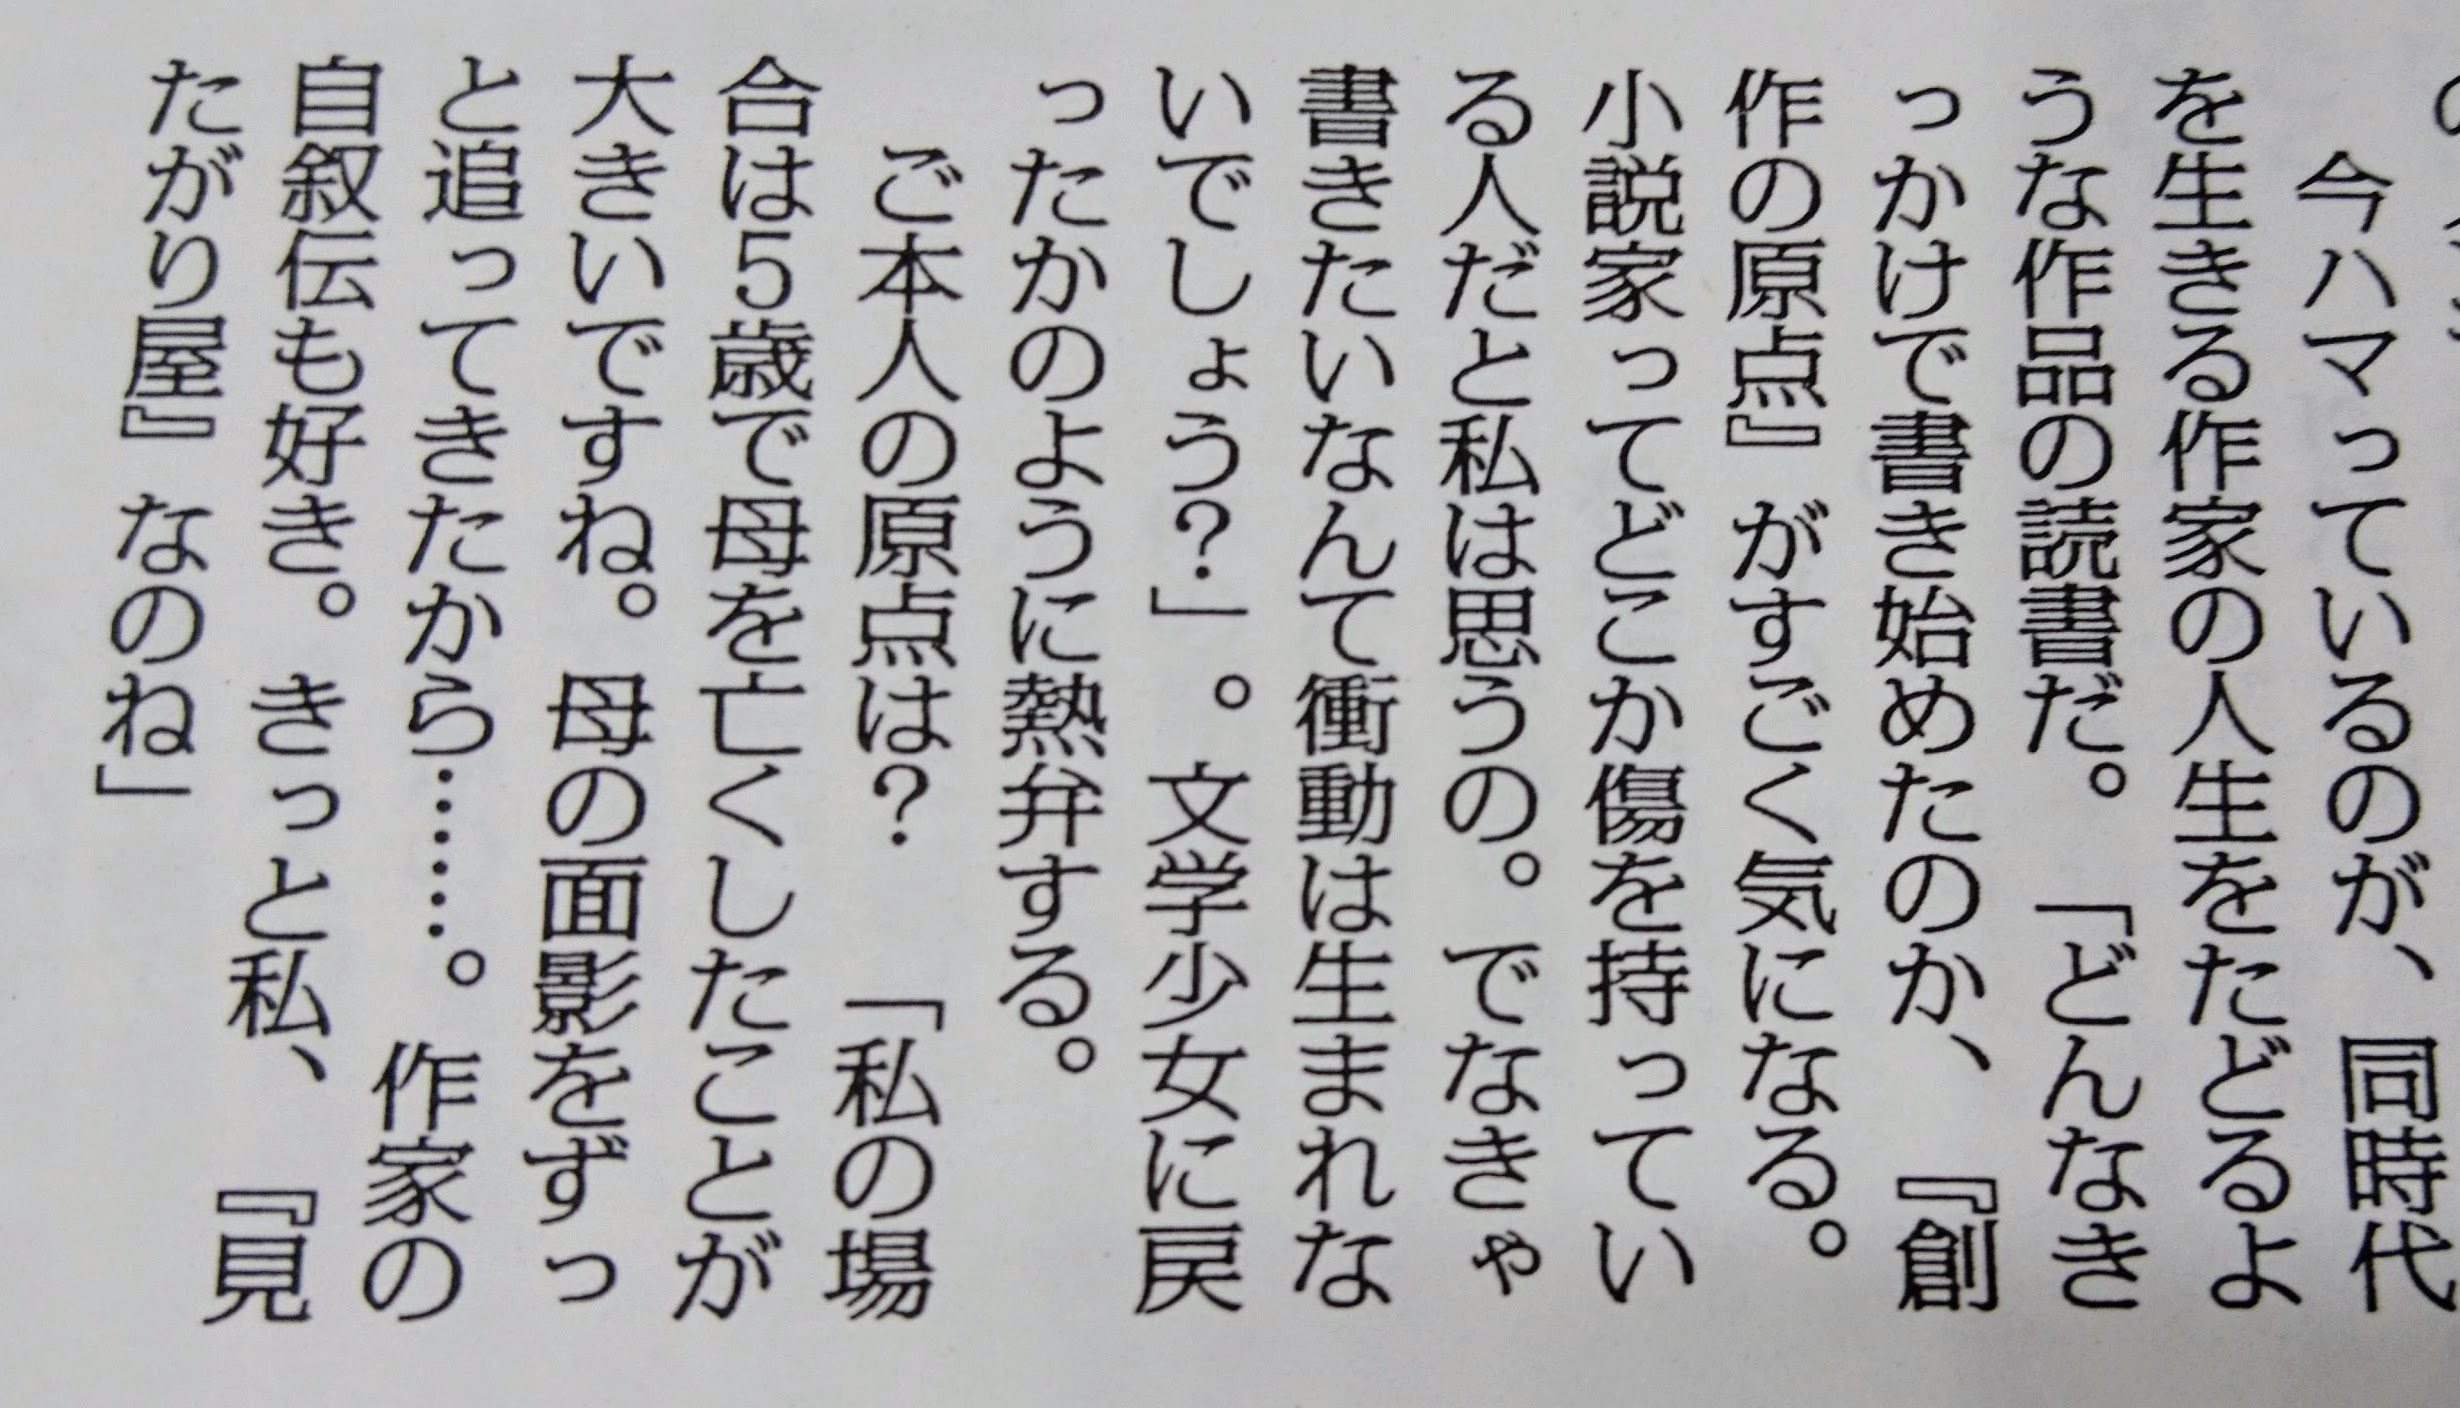 今ハマっているのが、同時代
を生きる作家の人生をたどるよ
うな作品の読書だ。「どんなき
っかけで書き始めたのか、『創
作の原点』がすごく気になる。
小説家ってどこか傷を持ってい
る人だと私は思うの。でなきゃ
書きたいなんて衝動は生まれな
いでしょう?」。文学少女に戻
ったかのように熱弁する。
ご本人の原点は?　「私の場
合は5歳で母を亡くしたことが
大きいですね。母の面影をずっ
と追ってきたから……。作家の
自叙伝も好き。きっと私、『見
たがり屋』なのね」